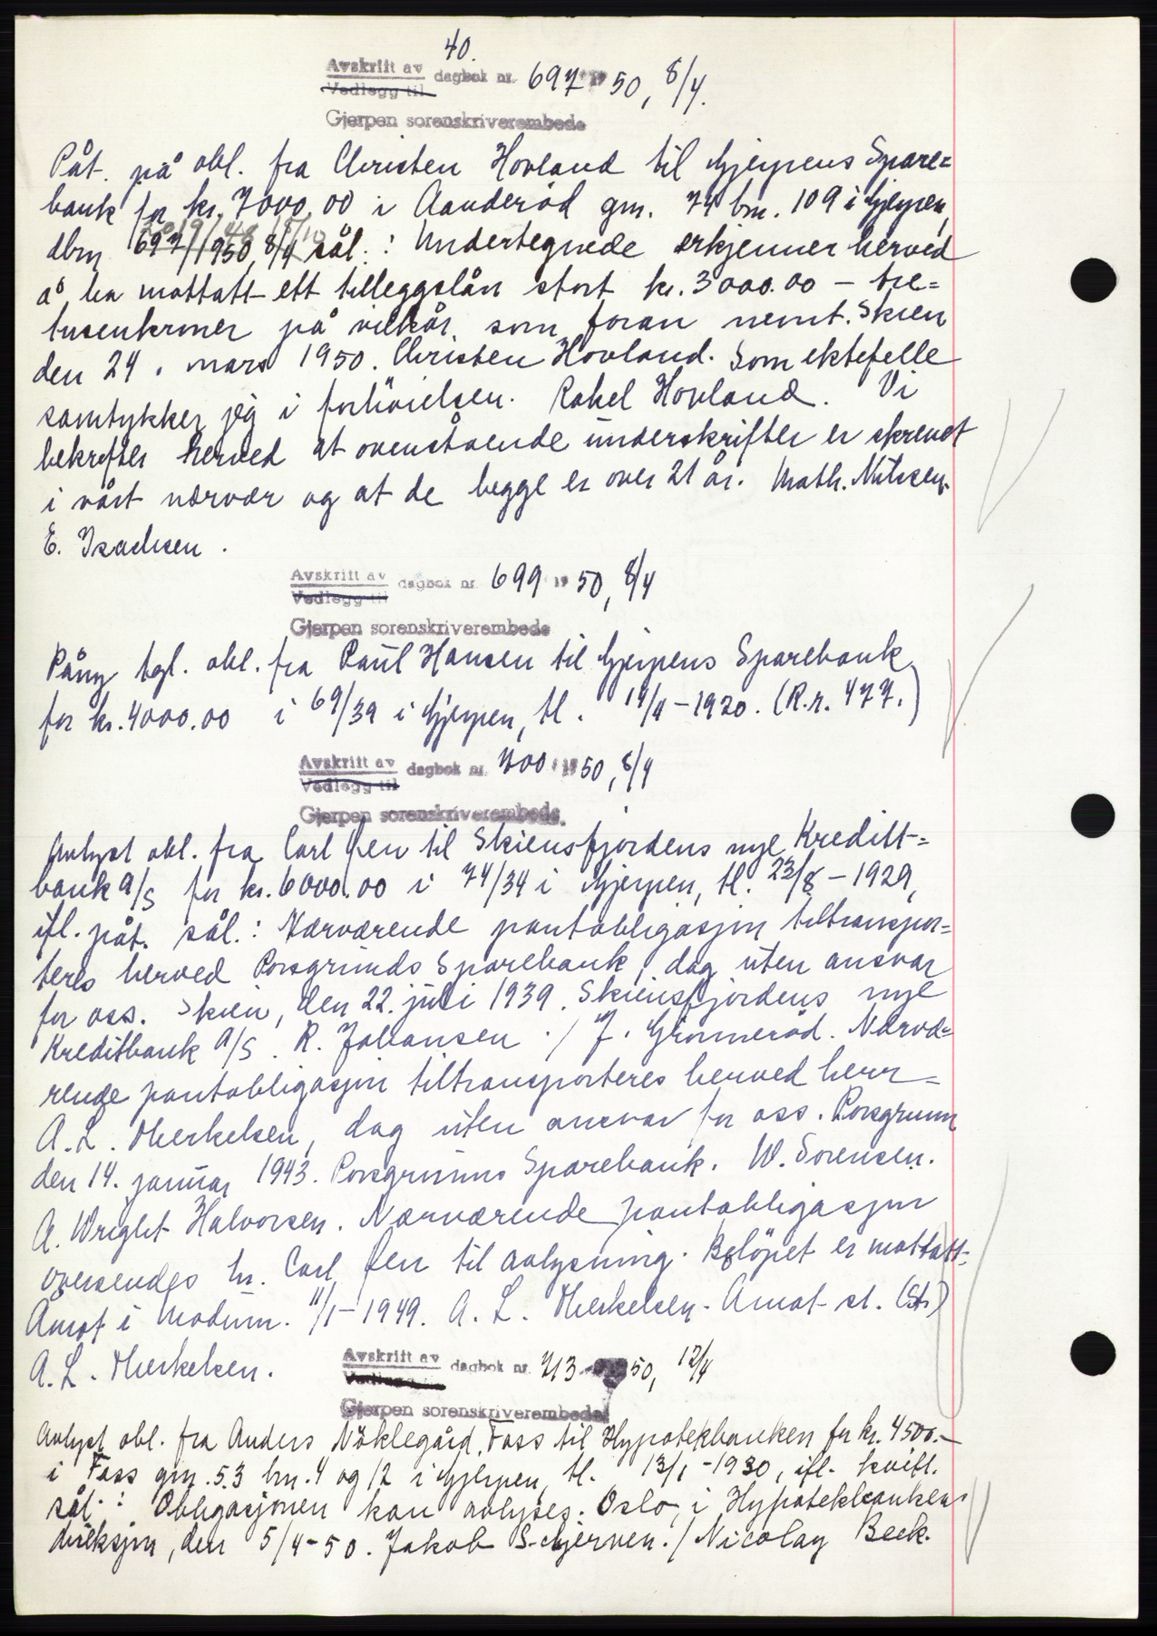 40.
Avskrift av dagbok nr. 697 19 50, 8/4.
Vedlegg til
Gjerpen sorenskriverembede
Påt. på obl. fra Christen Hovland til Gjerpens Spare=
bank for kr. 7000,00 i Aanderöd gnr. 74 bnr. 109 i Gjerpen,
dbnr 697/1950, 8/4 sål.: Undertegnede erkjenner herved
å ha mottatt ett tilleggslån stort kr. 3000.00 - tre=
tusenkroner på vilkår som foran nevnt. Skien
den 24. mars 1950. Christen Hovland. Som ektefelle
samtykker jeg i forhöielsen. Rakel Hovland. Vi
bekrefter herved at ovenstående underskrifter er skrevet
i vårt nærvær og at de begge er over 21 år. Math. Nilsen.
E. Isachsen.
Avskrift av dagbok nr. 699 19 50, 8/4
Vedlegg til
Gjerpen sorenskriverembede
Påny tgl. obl. fra Paul Hansen til Gjerpens Sparebank
for kr. 4000.00 i 69/39 i Gjerpen, tl. 14/4-1920. (R.r. 477.)
Avskrift av dagbok nr. 700 19 50, 8/4
Vedlegg til
Gjerpen sorenskriverembede.
Avlyst obl. fra Carl Fen til Skiensfjordens nye Kreditt-=
bank A/S for kr. 6000.00 i 74/34 i Gjerpen, tl. 23/8-1929,
ifl. påt. sål.: Nærværende pantobligasjon tiltranspor=
teres herved Porsgrunds Sparebank, dog uten ansvar
for oss. Skien, den 22. juli 1939. Skiensfjordens nye
Kreditbank A/S. R. Johansen ./ J. Grönneröd. Nærvæ=
rende pantobligasjon tiltransporteres herved herr=
A. L. Merkelsen, dog uten ansvar for oss. Porsgrunn
den 14. januar 1943. Porsgrunns Sparebank. W. Sorensen.
A. Wright Halvorsen. Nærværende pantobligasjon
oversendes hr. Carl Fen til avlysning. Belöpet er mottatt.
Åmot i Modum. 11/1-1949. A. L. Merkelsen. Åmot st. (St.)
A. L. Merkelsen.
Avskrift av dagbok nr. 713 50, 12/4
Vedlegg til
Gjerpen sorenskriverembede
Avlyst obl. fra Anders Nöklegård, Foss til Hypotekbanken for kr. 4500.-
i Foss gnr. 53 bnr. 4 og 12 i Gjerpen, tl. 13/1-1930, ifl. kvitt.
sål.: Obligasjonen kan avlyses. Oslo, i Hypotekbankens
direksjon, den 5/4-50. Jakob Schjerven./ Nicolay Beck.